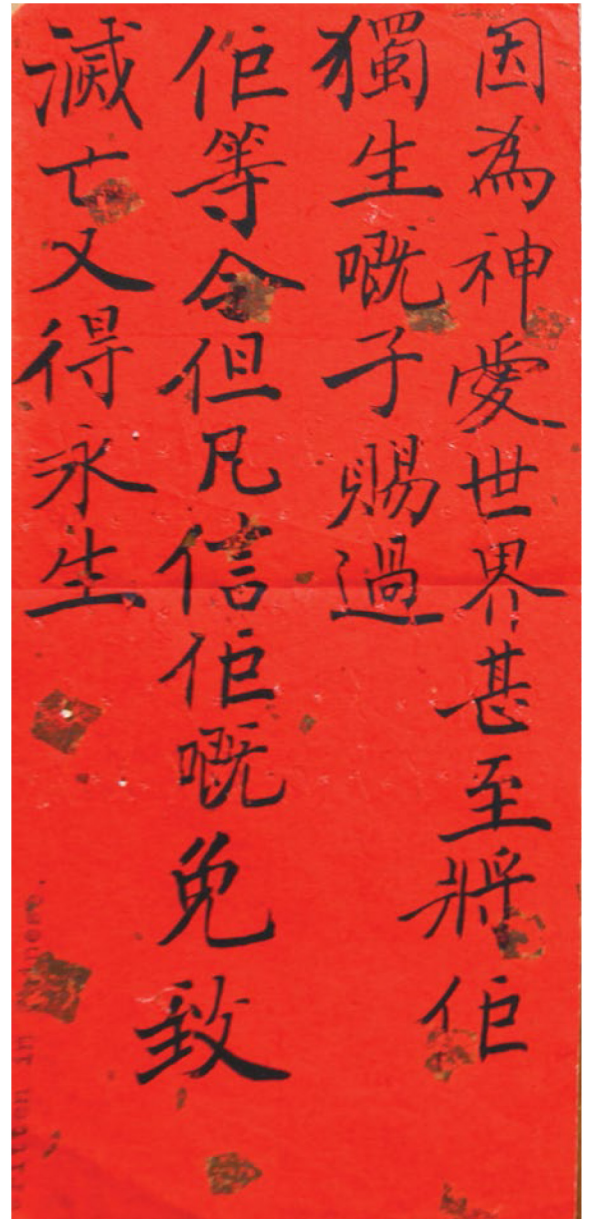 因為神愛世界甚至將佢
獨生嘅子賜過
佢等令但凡信佢嘅免致
滅亡又得永生